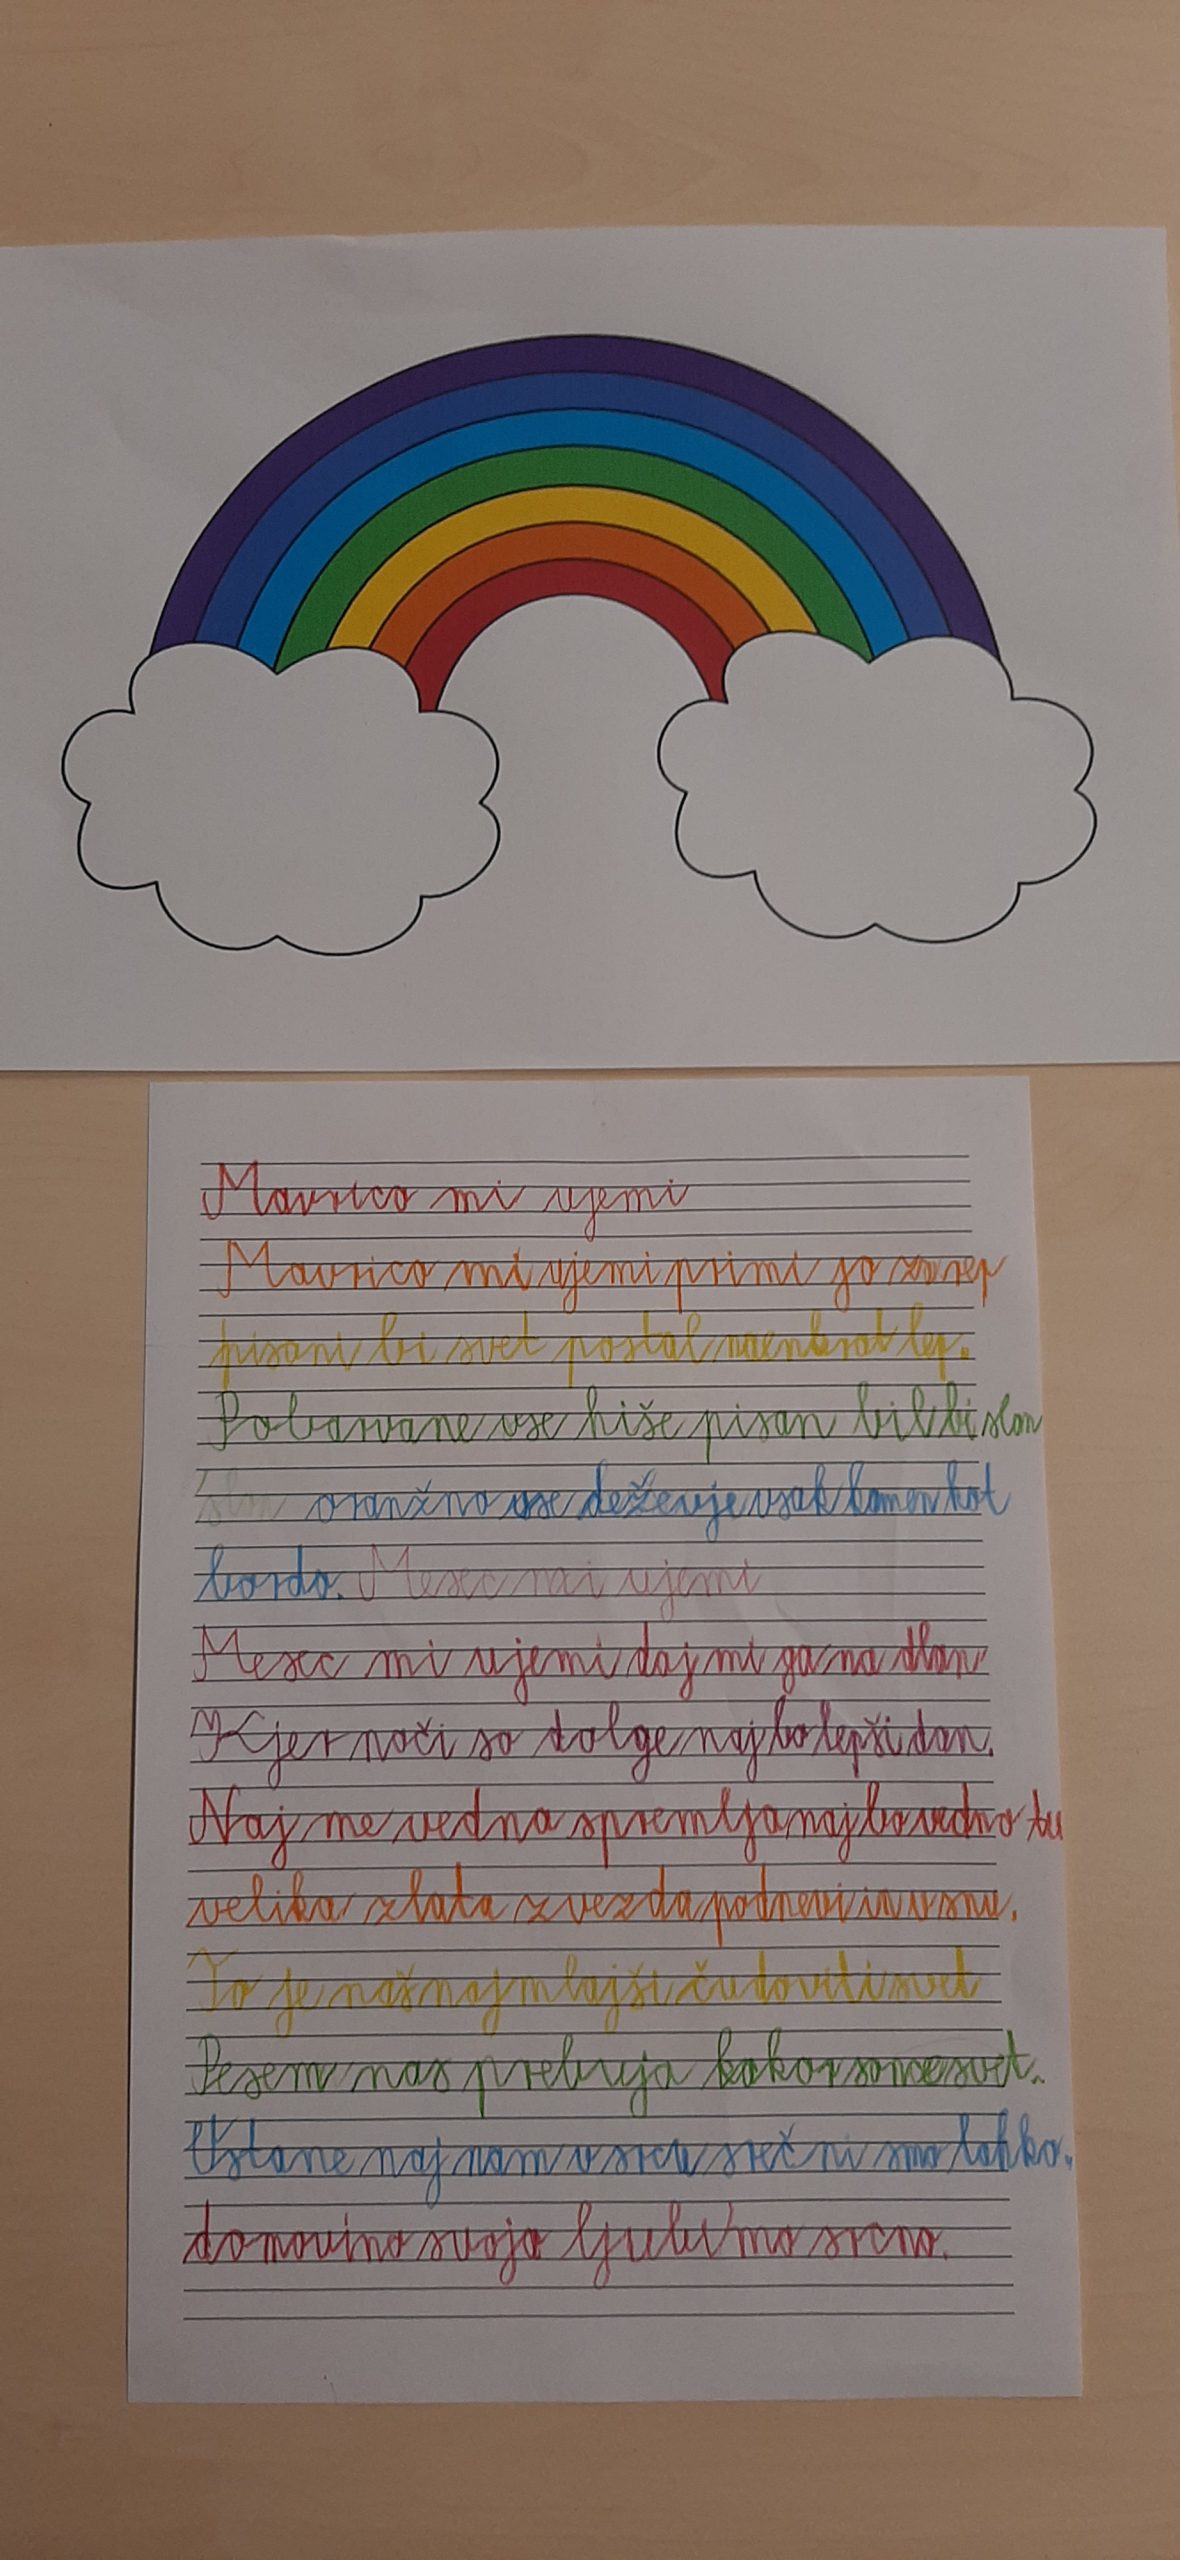 Mavrico mi ujemi
Mavrico mi ujemi primi jo za rep
pisani bi svet postal naenkrat lep.
Pobarvane vse hiše pisan bil bi slon
slon oranžno vse dežuje vsak kamen kot
bordo. Mesec mi ujemi
Mesec mi ujemi daj mi ga na dlan
Kjer noči so dolge naj bo lepši dan.
Naj me vedno spremlja naj bo vedno tu
velika zlata zvezda podnevi in v snu.
To je naš najmlajši čudoviti svet
Pesem nas prebuja kakor sonce svet.
Ustane naj nam v srcu sreč ni smo lahko.
domovino svojo ljubimo srcno.